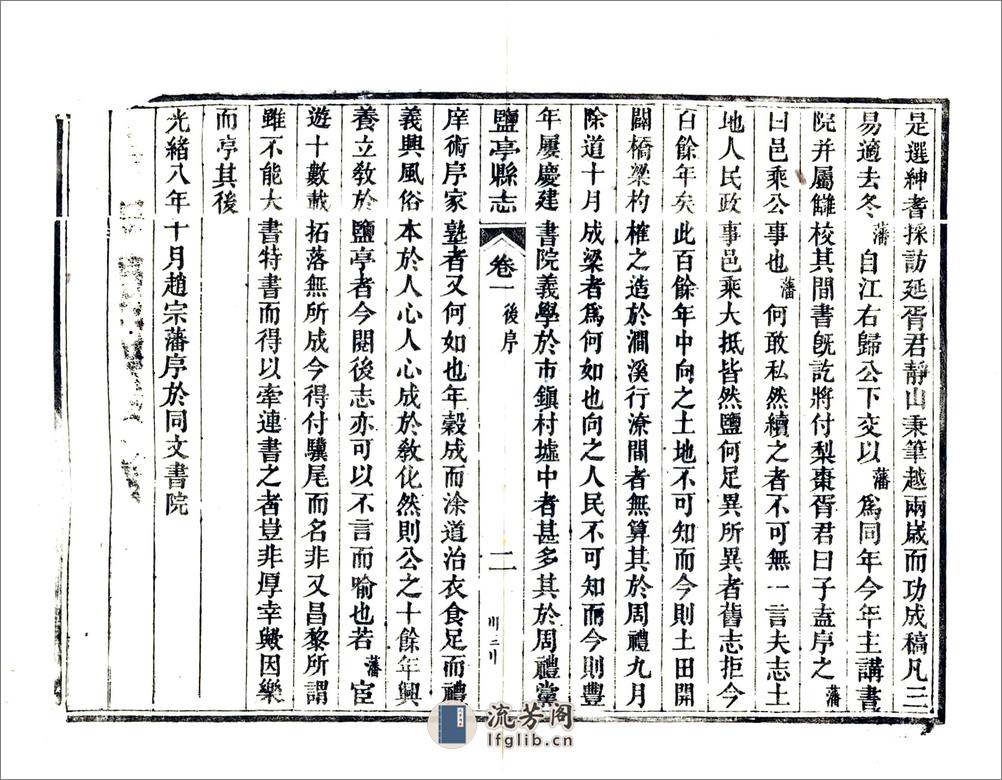 是選紳耆採訪延胥君靜山秉筆越兩歲而功成稿凡三
易適去冬藩自江右歸公下交以藩爲同年今年主講書
院并屬讎校其間書旣訖將付梨棗胥君曰子盍序之藩
曰邑乘公事也藩何敢私然續之者不可無一言夫志土
地人民政事邑乘大抵皆然鹽何足異所異者舊志拒今
百餘年矣此百餘年中向之土地不可知而今則土田開
闢橋梁杓榷之造於澗溪行潦間者無算其於周禮九月
除道十月成梁者爲何如也向之人民不可知而今則豐
年屢慶建書院義學於市鎮村墟中者甚多其於周禮黨
鹽亭縣志 卷一 後序 二
庠術序家塾者又何如也年穀成而涂道治衣食足而禮
義興風俗本於人心人心成於敎化然則公之十餘年興
養立敎於鹽亭者今閱後志亦可以不言而喻也若藩宦
遊十數載拓落無所成今得付驥尾而名非又昌黎所謂
雖不能大書特書而得以牽連書之者豈非厚幸歟因樂
而序其後
光緒八年十月趙宗藩序於同文書院
流芳阁
lfglib.cn